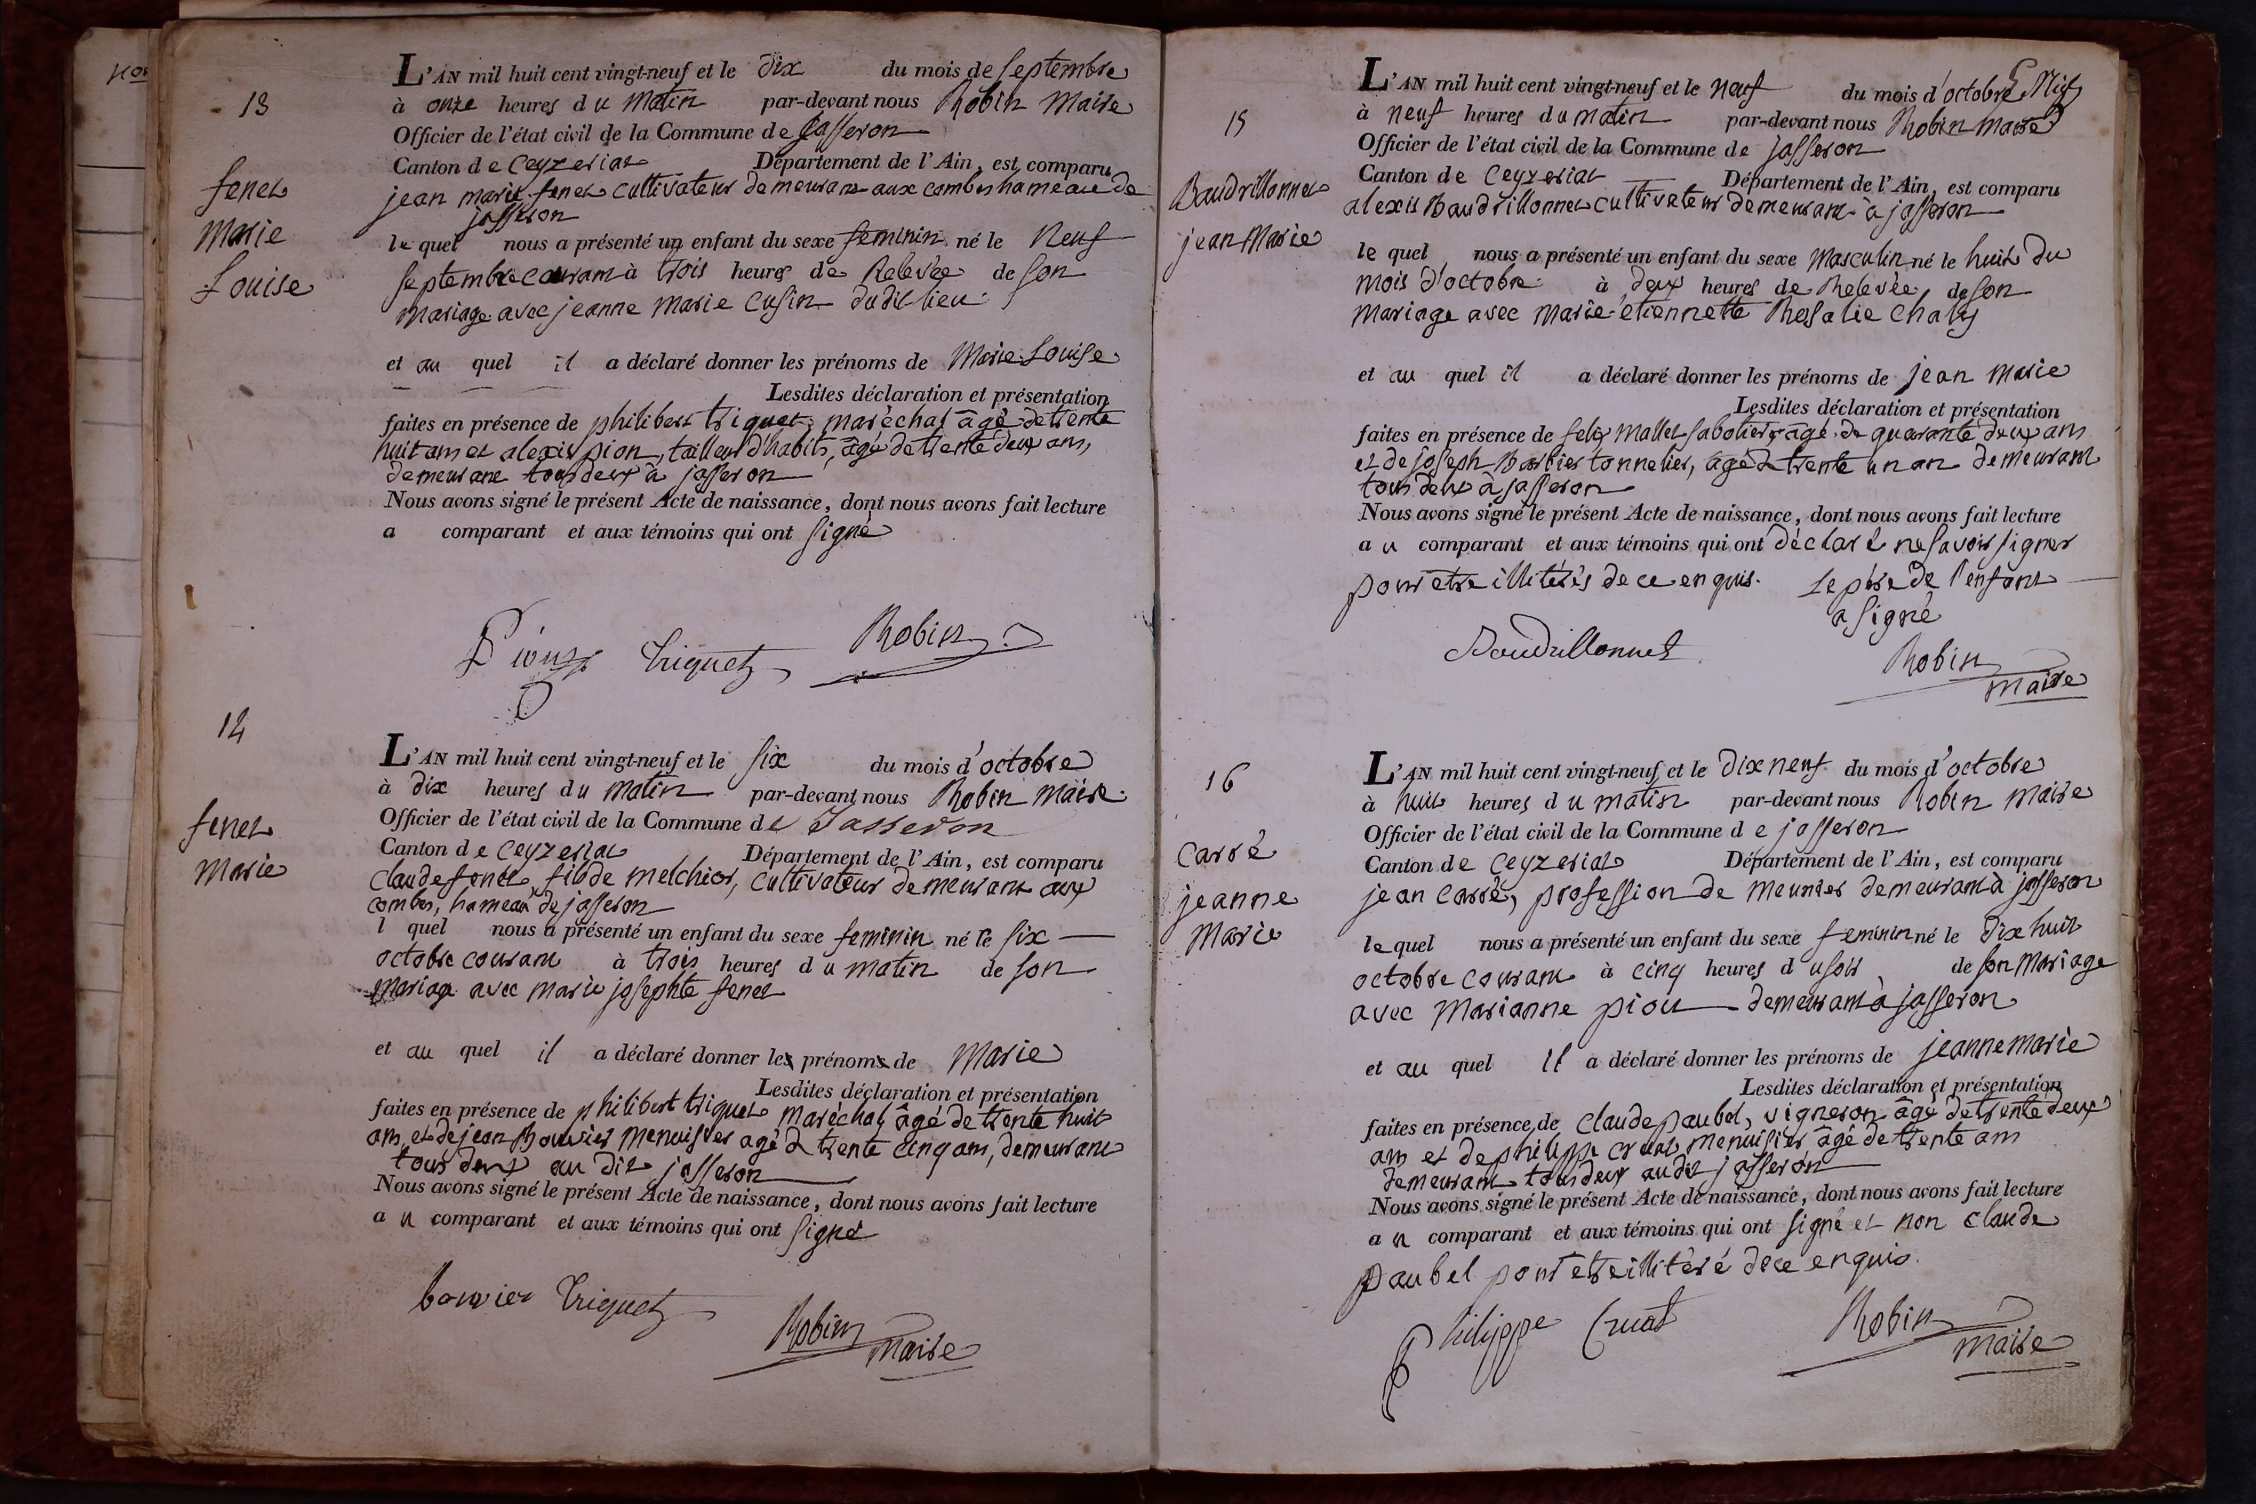 13
fenet
Marie
Louise
L'AN mil huit cent vingt-neuf et le dix du mois de septembre
à onze heures du matin par-devant nous Robin Maire
Officier de l'état civil de la Commune de Jasseron
Canton de Ceyzeriat Département de l'Ain, est comparu
jean marie fenet cultivateur demeurant aux combes hameau de
jasseron
lequel nous a présenté un enfant du sexe feminin né le Neuf
septembre courant à trois heures de Relevée de son
mariage avec jeanne marie cusin dudit lieu
et au quel il a déclaré donner les prénoms de Marie Louise
Lesdites déclaration et présentation
faites en présence de philibert triquet, maréchal âgé de trente
huit ans et alexis pion, tailleur d'habits, âgé de trente deux ans,
demeurant tous deux à jasseron
Nous avons signé le présent Acte de naissance, dont nous avons fait lecture
a comparant et aux témoins qui ont signé
Pion Triquet Robin
14
fenet
Marie
L'AN mil huit cent vingt-neuf et le six du mois d'octobre
à dix heures du matin par-devant nous Robin Maire
Officier de l'état civil de la Commune de Jasseron
Canton de Ceyzeriat Département de l'Ain, est comparu
Claude fenet, fils de melchior, cultivateur demeurant aux
combes, hameau de jasseron
l quel nous a présenté un enfant du sexe feminin né le six
octobre courant à trois heures du matin de son
mariage avec marie josephte fenet
et au quel il a déclaré donner les prénoms de Marie
Lesdites déclaration et présentation
faites en présence de philibert triquet maréchal, âgé de trente huit
ans, et de jean Bouvier menuisier agé de trente cinq ans, demeurant
tous deux au dit jasseron
Nous avons signé le présent Acte de naissance, dont nous avons fait lecture
au comparant et aux témoins qui ont signé
bouvier Triquet
Robin
maire
15
Baudrillonnet
jean Marie
L'AN mil huit cent vingt-neuf et le neuf du mois d'octobre
à neuf heures du matin par-devant nous Robin Maire
Officier de l'état civil de la Commune de jasseron
Canton de Ceyzeriat Département de l'Ain, est comparu
alexis Baudrillonnet cultivateur demeurant à jasseron
le quel nous a présenté un enfant du sexe Masculin né le huit du
mois d'octobre à deux heures de Relevée, de son
mariage avec marie étiennette Rosalie Chaly
et au quel il a déclaré donner les prénoms de jean Marie
Lesdites déclaration et présentation
faites en présence de felix mallet sabotier, âgé de quarante deux ans
et de joseph Barbier tonnelier, âgé de trente un an demeurant
tous deux à jasseron
Nous avons signé le présent Acte de naissance, dont nous avons fait lecture
au comparant et aux témoins qui ont déclaré ne savoir signer
pour etre illitérés de ce enquis. Le père de l'enfant
a signé
Baudrillonnet
Robin
maire
16
Carré
jeanne
Marie
L'AN mil huit cent vingt-neuf et le dix neuf du mois d'octobre
à huit heures du matin par-devant nous Robin Maire
Officier de l'état civil de la Commune de jasseron
Canton de Ceyzeriat Département de l'Ain, est comparu
jean Carré, profession de meunier demeurant à jasseron
le quel nous a présenté un enfant du sexe feminin né le dix huit
octobre courant à cinq heures du soir, de son mariage
avec Marianne piou demeurant à jasseron
et au quel il a déclaré donner les prénoms de jeanne marie
Lesdites déclaration et présentation
faites en présence, de Claude paubel, vigneron âgé de trente deux
ans et de philippe cruat menuisier âgé de trente ans
demeurant tous deux au dit jasseron
Nous avons signé le présent Acte de naissance, dont nous avons fait lecture
au comparant et aux témoins qui ont signé et non Claude
paubel pour etre illitéré de ce enquis.
Philippe Cruat
Robin
maire